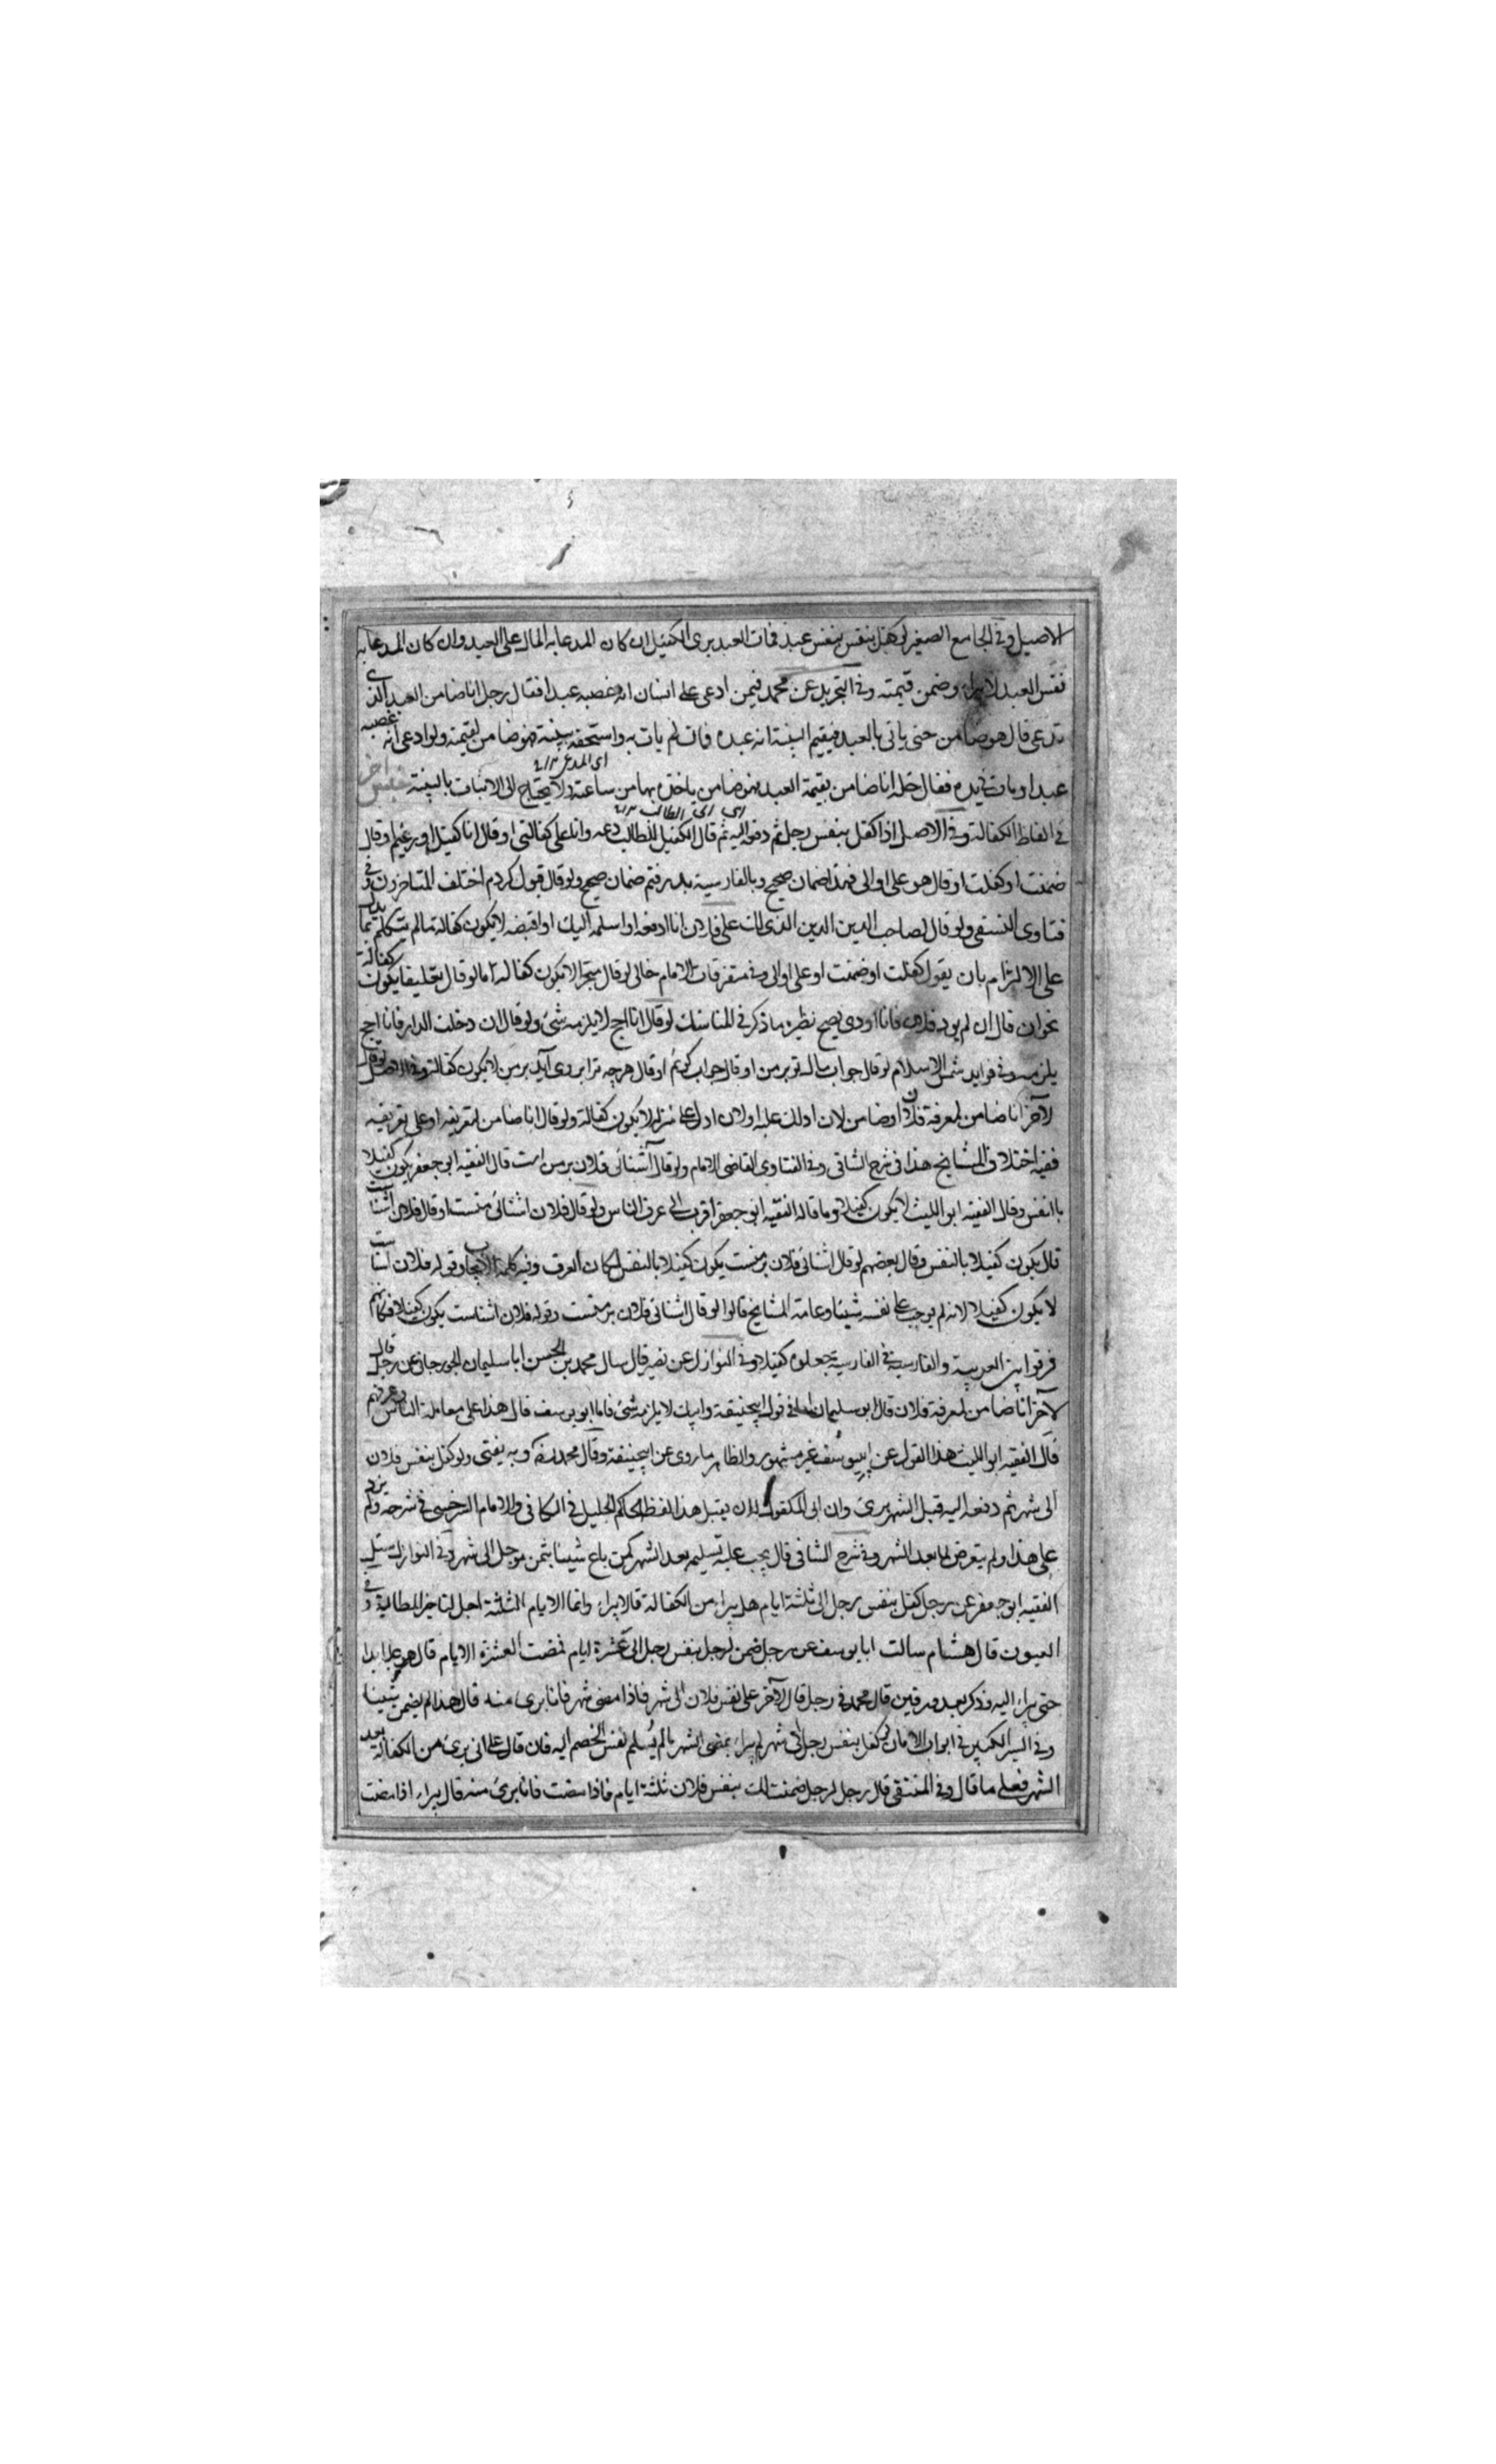 الاصيل وفي الجامع الصغير لو كفل بنفس بنفس عبد فمات العبد برى الكفيل ان كان المدعا به المال على العبد وان كان المدعا به
نفس العبد لا يبراء وضمن قيمته وفي التجريد عن محمد فيمن ادعى على انسان انه غصبه عبدا فقال رجل انا ضامن العبد الذى
تدعى قال هو ضامن حتى ياتى بالعبد فيقيم البينة انه عبده فان لم يات به واستحقه ببينة فهو ضامن لقيمته ولو ادعى انه غصبه
عبدا ومات في يده فقال خله انا ضامن بقيمة العبد فهو ضامن ياخذه بها من ساعته ولا يحتاج الى الاثبات بالبينة
في الفاظ الكفالة وفي الاصل اذا كفل بنفس رجل ثم دفعه اليه ثم قال الكفيل للطالب دعه وانا على كفالتى او قال انا كفيل او زعيم وقال
ضمنت او كفلت او قال هو على او الى فهذا ضمان صحيح وبالفارسية پذيرفتم ضمان صحيح ولو قال قبول كردم اختلف المتاخرون وفي
فتاوى النسفى ولو قال لصاحب الدين الدين الذى لك على فلان انا ادفعه او اسلمه اليك او اقبضه لا يكون كفالة ما لم يتكلم بما يدل
على الالتزام بان يقول كفلت او ضمنت او على او الى وفي متفرقات الامام خالى لو قال منجزا لا يكون كفالة اما لو قال تعليقا يكون كفالة
نحو ان قال ان لم يود فلان فانا اودى يصح نظيره ما ذكر في المناسك لو قال انا احج لا يلزمه شئ ولو قال ان دخلت الدار فانا احج
يلزمه وفي فوايد شمس الاسلام لو قال جواب مال تو بر من او قال جواب گويم او قال هرچه ترا بروى آيد بر من لا يكون كفالة وفي الاصل لو قال
لآخر انا ضامن لمعرفة فلان او ضامن لان ادلك عليه او لان ادل على منزله لا يكون كفالة ولو قال انا ضامن لتعريفه او على تعريفه
ففيه اختلاف المشايخ هذا في شرح الشافى وفي الفتاوى القاضى الامام ولو قال آشنائى فلان بر من است قال الفقيه ابو جعفر يكون كفيلا
بالنفس وقال الفقيه ابو الليث لا يكون كفيلا وما قاله الفقيه ابو جعفر اقرب الى عرف الناس ولو قال فلان اشنائى منست او قال فلان آشنا است
قال يكون كفيلا بالنفس وقال بعضهم لو قال اشنائى فلان بر منست يكون كفيلا بالنفس لمكان العرف وفيه كلمة الايجاب وقوله فلان آشنا است
لا يكون كفيلا لانه لم يوجب على نفسه شيئا وعامة المشايخ قالوا لو قال اشنائى فلان بر منست وقوله فلان اشناست يكون كفيلا فكانهم
فرقوا بين العربية والفارسية في الفارسية جعلوه كفيلا وفي النوازل عن نصير قال سال محمد بن الحسن ابا سليمان الجوزجانى عن رجل قال
لآخر انا ضامن لمعرفة فلان قال ابو سليمان اما في قول ابيحنيفة وابيك لا يلزمه شئ فاما ابو يوسف قال هذا على معاملة الناس وعرفهم
قال الفقيه ابو الليث هذا القول عن ابى يوسف غير مشهور والظاهر ما روى عن ابيحنيفة وقال محمد وبه يفتى ولو كفل بنفس فلان
الى شهر ثم دفعه اليه قبل الشهر برئ وان ابى المكفول له ان يقبل هذا لفظ الحاكم الجليل في الكافى والامام السرخسى في شرحه ولم يزد
على هذا ولم يتعرض لما بعد الشهر وفي شرح الشافى قال يجب عليه تسليمه بعد الشهر كمن باع شيئا بثمن موجل الى شهر وفي النوازل سئل
الفقيه ابو جعفر عن رجل كفل بنفس رجل الى ثلثة ايام هل يبراء من الكفالة قال لا يبراء وانما الايام الثلثة اجل لتاخير المطالبة وفي
العيون قال هشام سالت ابا يوسف عن رجل ضمن لرجل بنفس رجل الى عشرة ايام فمضت العشرة الايام قال هو عليه ابدا
حتى يبراء اليه وذكر بعد ورقين قال محمد في رجل قال لآخر على نفس فلان الى شهر فاذا مضى شهر فانا برى منه قال هذا لم يضمن شيئا
وفي السير الكبير في ابواب الامان لو كفل بنفس رجل الى شهر لم يبراء بمضى الشهر ما لم يسلم نفس الخصم اليه فان قال على انى برئ من الكفالة بعد
الشهر فعلى ما قال وفي المنتقى قال رجل لرجل ضمنت لك بنفس فلان ثلثة ايام فاذا مضت فانا برئ منه قال يبراء اذا مضت